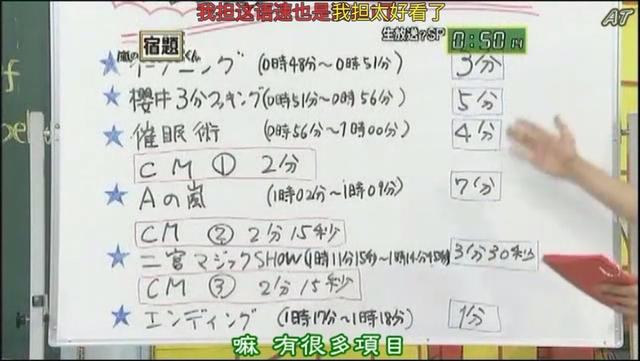 我担这语速也是我担太好看了
AT
嵐の宿題くん
生放送?SP
0:50 04
★オープニング (0時48分〜0時51分) 3分
★櫻井3分クッキング(0時51分〜0時56分) 5分
★催眠術 (0時56分〜1時00分) 4分
CM ① 2分
★Aの嵐 (1時02分〜1時09分) 7分
CM ② 2分15秒
★二宮マジックSHOW(1時11分15秒〜1時14分45秒) 3分30秒
CM ③ 2分15秒
★エンディング (1時17分〜1時18分) 1分
嘛 有很多項目